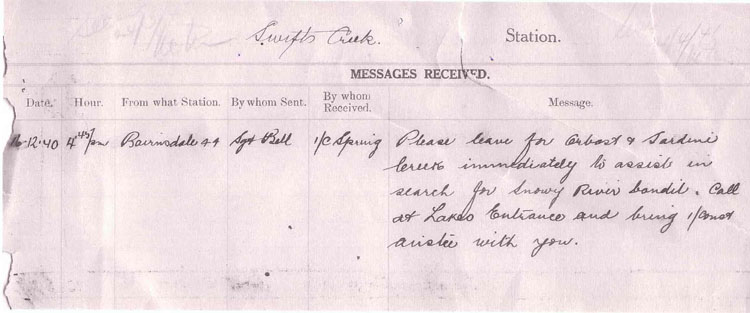 Swifts Creek. Station.
MESSAGES RECEIVED.
Date. Hour. From what Station. By whom Sent. By whom Received. Message.
12.40 4.45pm Bairnsdale Sgt Bell 1/C Spring Please leave for Orbost & Sardine
Creek immediately to assist in
search for Snowy River bandit. Call
at Lakes Entrance and bring 1/Const
with you.